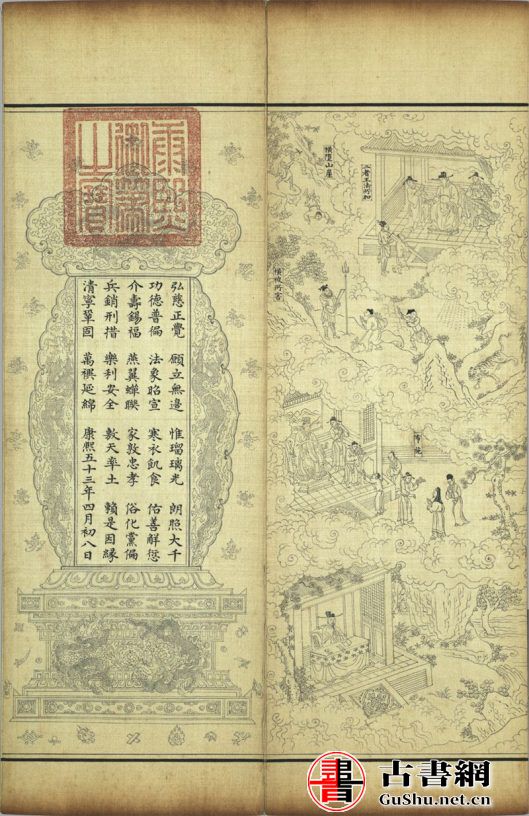 二者王法所加
橫墮山崖
康熙御筆之寶
弘慈正覺 願立無邊 惟瑠璃光 朗照大千
功德普徧 法象昭宣 寒衣飢食 佑善解愆
介壽錫福 燕翼蟬聯 家敦忠孝 俗化黨偏
兵銷刑措 樂利安全 敷天率土 賴是因緣
清寧鞏固 萬禩延綿 康熙五十三年四月初八日
書 古書網
GuShu.net.cn